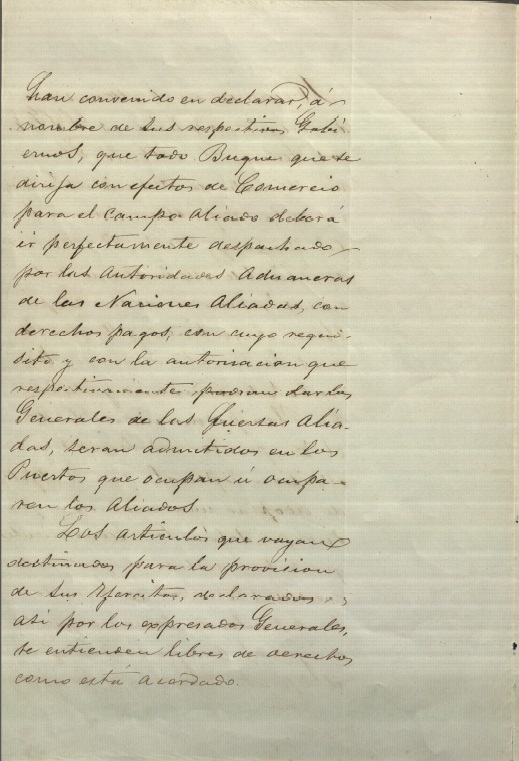 han convenido en declarar, á
nombre de sus respectivos Gobi
ernos, que todo Buque que se
dirija con efectos de Comercio
para el Campo Aliado deberá
ir perfectamente despachado
por las Autoridades Aduaneras
de las Naciones Aliadas, con
derechos pagos, con cuyo requi-
sito y con la autorisacion que
respectivamente podran dar los
Generales de las fuersas Alia-
das, seran admitidos en los
Puertos que ocupan ú ocupa-
ren los Aliados.
Los articulos que vayan
destinados para la provision
de sus Ejercitos, declarados
asi por los expresados Generales,
se entienden libres de derechos
como está acordado.